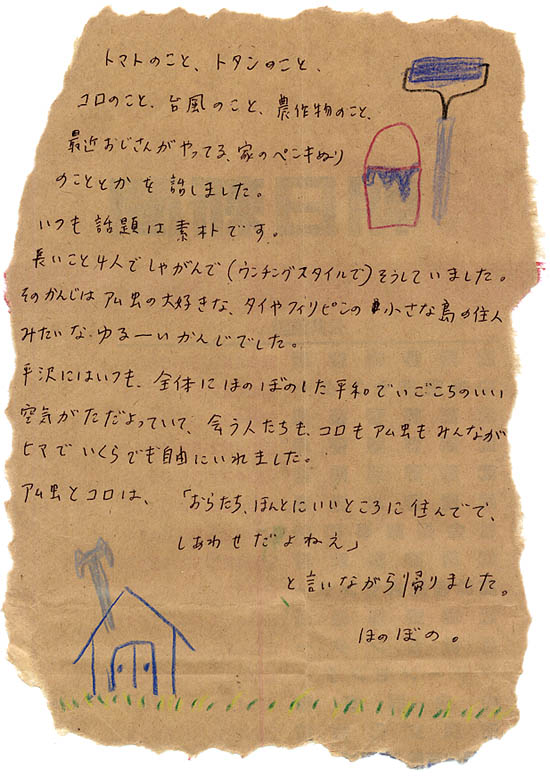 トマトのこと、トタンのこと、
コロのこと、台風のこと、農作物のこと、
最近おじさんがやってる、家のペンキぬり
のこととかを話しました。
いつも話題は素朴です。
長いこと4人でしゃがんで(ウンチングスタイルで)そうしていました。
そのかんじはアム虫の大好きな、タイやフィリピンの小さな島の住人
みたいな ゆるーいかんじでした。
平沢にはいつも、全体にほのぼのした平和でいごこちのいい
空気がただよっていて、会う人たちも、コロもアム虫もみんなが
ヒマでいくらでも自由にいれました。
アム虫とコロは、「おらたち、ほんとにいいところに住んでで、
しあわせだよねえ」
と言いながら帰りました。
ほのぼの。